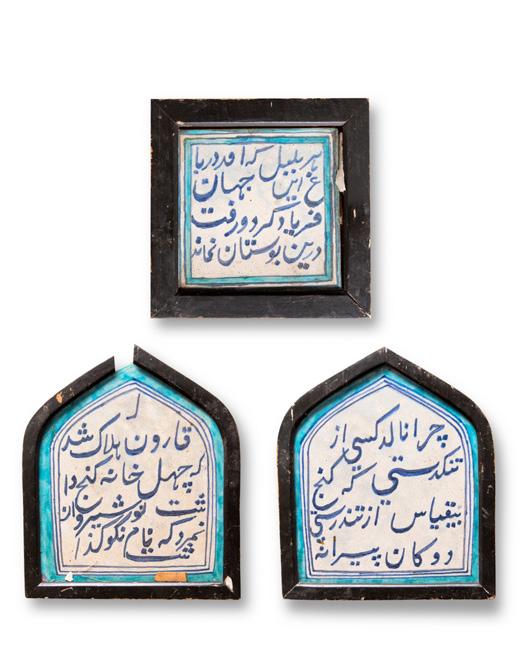 هر بلبل که امد در با
غ این جهان
فریاد کرد و رفت
درین بوستان نماند
قارون هلاک شد
که چهل خانه کنج دا
شت نوشیروان
نمرد که نام نکو کذا
شت
چرا نالد کسی از
تنکدستی که کنج
بیقیاس از تندرستی
دوکان